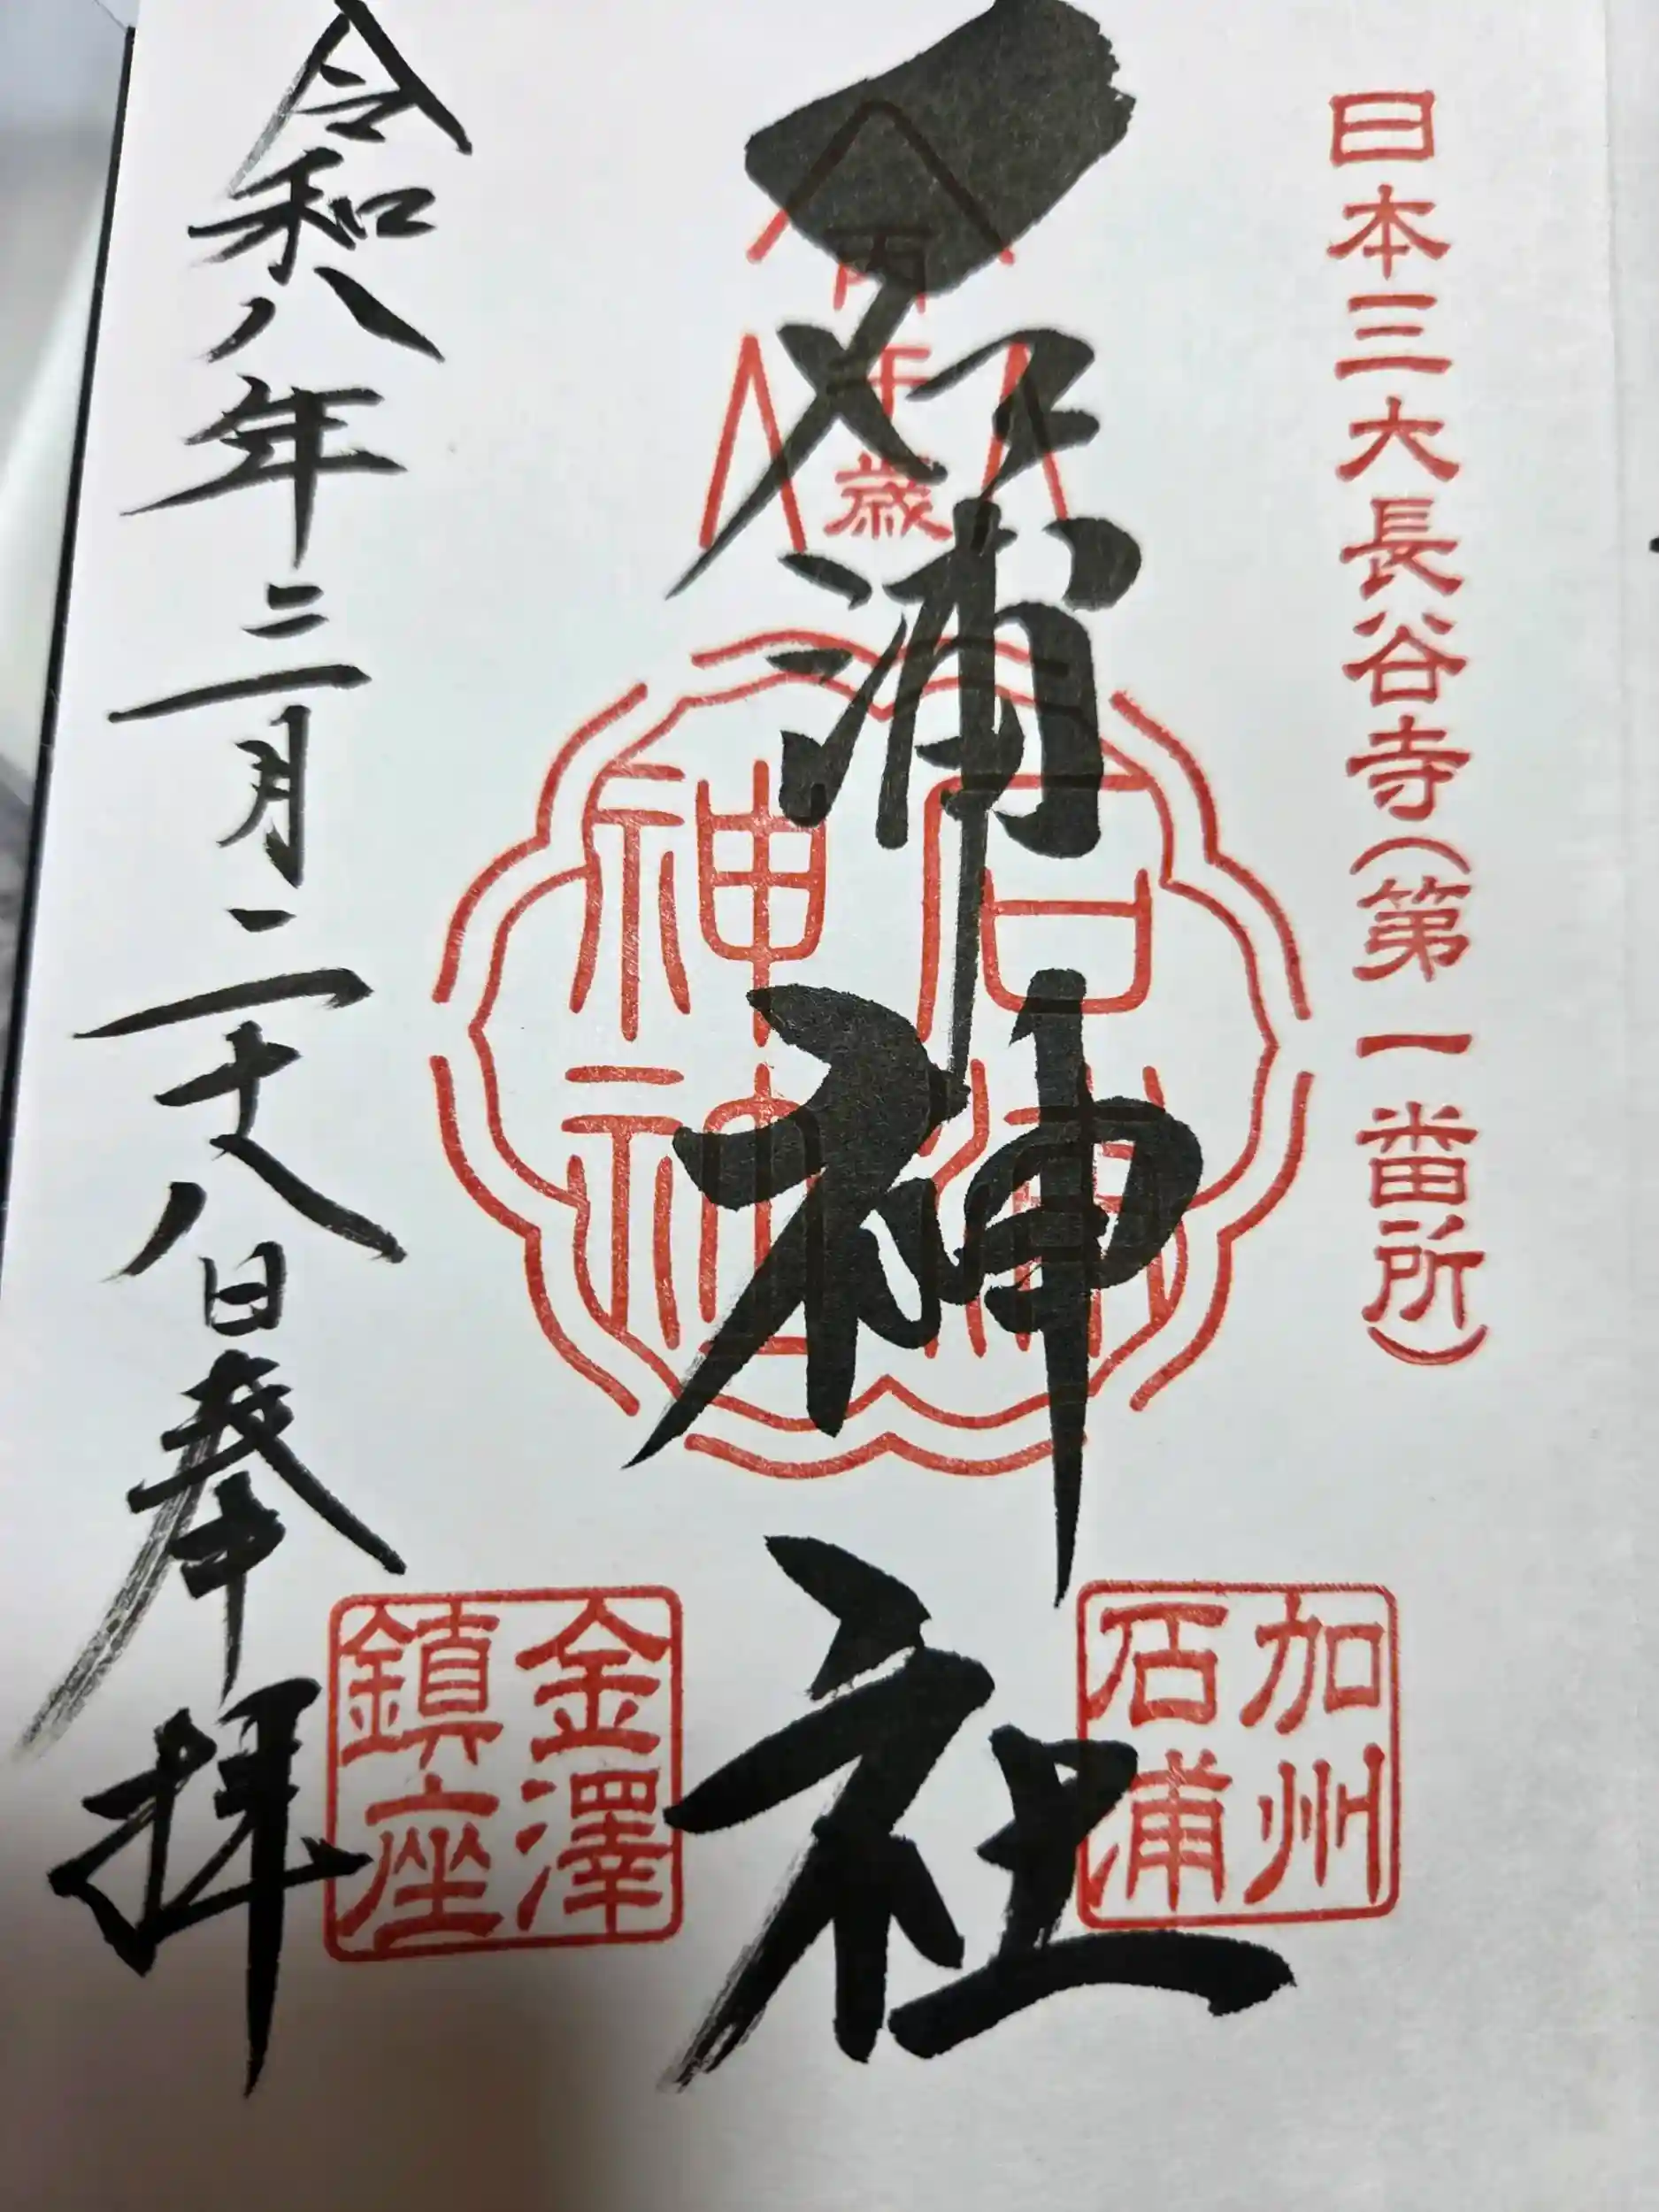 日本三大長谷寺(第一番所)
加州
石浦
石浦神社
千歳
石浦
神社
令和八年三月二十八日奉拝
金澤
鎮座